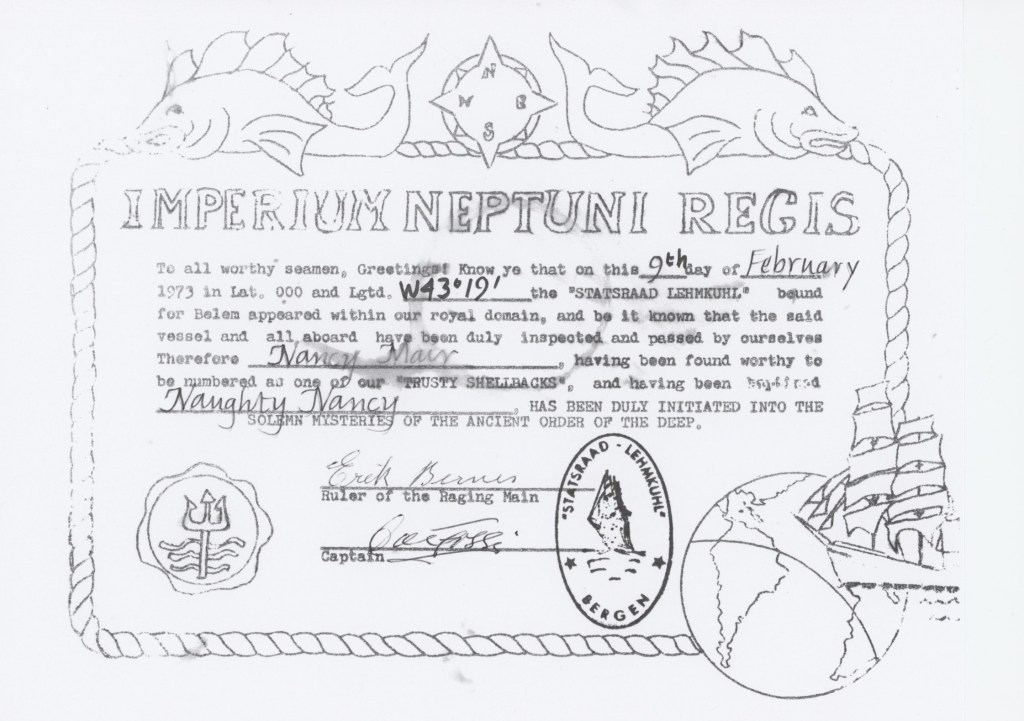 N
W E
S
IMPERIUM NEPTUNI REGIS
To all worthy seamen, Greetings! Know ye that on this 9th day of February
1973 in Lat. 000 and Lgtd. W43°19' the "STATSRAAD LEHMKUHL" bound
for Belem appeared within our royal domain, and be it known that the said
vessel and all aboard have been duly inspected and passed by ourselves
Therefore Nancy Mair, having been found worthy to
be numbered as one of our "TRUSTY SHELLBACKS", and having been
Naughty Nancy, HAS BEEN DULY INITIATED INTO THE
SOLEMN MYSTERIES OF THE ANCIENT ORDER OF THE DEEP.
Erik
Ruler of the Raging Main
Captain
"STATSRAAD - LEHMKUHL"
BERGEN